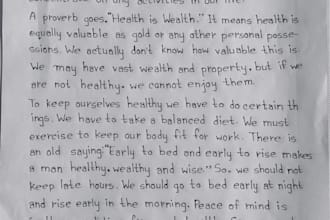 on any activities in our life.
A proverb goes,"Health is Wealth." It means health is
equally valuable as gold or any other personal posse-
ssions. We actually don't know how valuable this is.
We may have vast wealth and property. but if we
are not healthy. we cannot enjoy them.
To keep ourselves healthy we have to do certain th
ings. We have to take a balanced diet. We must
exercise to keep our body fit for work. There is
an old saying."Early to bed and early to rise makes
a man healthy. wealthy and wise." So. we should not
keep late hours. We should go to bed early at night
and rise early in the morning. Peace of mind is